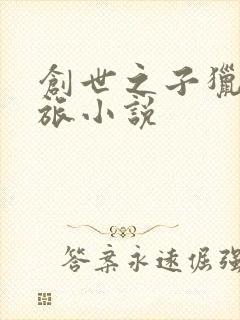 創世之子獵
旅小說
答案永遠倔強